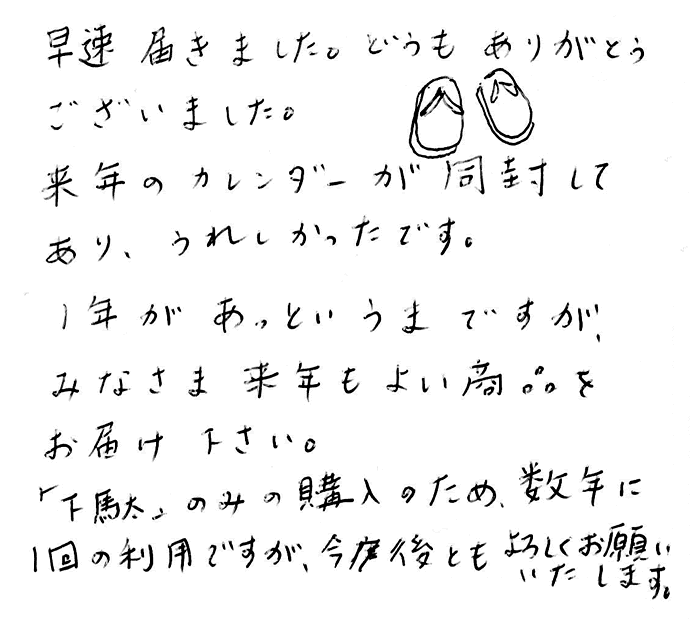 早速 届きました。どうも ありがとう
ございました。
来年のカレンダーが同封して
あり、うれしかったです。
1年が あっというまですが、
みなさま 来年もよい商品を
お届け下さい。
「下駄太」のみの購入のため、数年に
1回の利用ですが、今度後ともよろしくお願い
いたします。